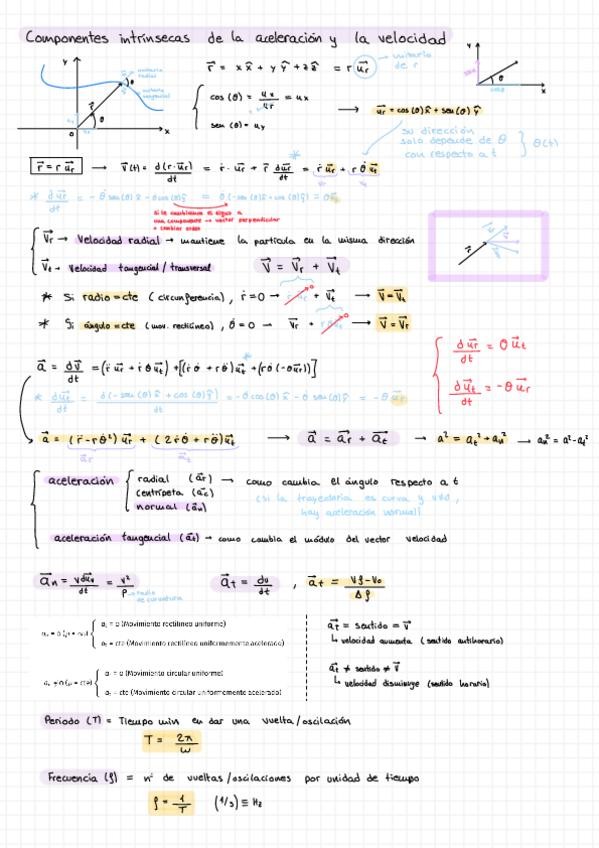 Componentes intrínsecas de la aceleración y la velocidad
y
unitario radial
unitario tangencial
θ
r⃗
0
x
r⃗ = x x̂ + y ŷ + z ẑ = r u⃗r
unitario de r
y
θ
cosθ
x
cos (θ) = ux/ur = ux
sen (θ) = uy
→ u⃗r = cos(θ)x̂ + sen(θ)ŷ
su dirección
solo depende de θ
con respecto a t
θ(t)
r⃗ = r u⃗r → v⃗(t) = d(r·u⃗r)/dt = ṙ·u⃗r + r⃗ du⃗r/dt = ṙ u⃗r + r θ̇ u⃗t
* du⃗r/dt = -θ̇ sen(θ)x̂ - θ̇ cos(θ)ŷ = θ̇(-sen(θ)x̂ + cos(θ)ŷ) = θ̇u⃗t
Si le cambiamos el signo a
una componente → vector perpendicular
+ cambiar orden
V⃗r → Velocidad radial → mantiene la partícula en la misma dirección
V⃗t → Velocidad tangencial / transversal V⃗ = V⃗r + V⃗t
* Si radio = cte (circunferencia), ṙ = 0 → ṙu⃗r + V⃗t → V⃗ = V⃗t
* Si ángulo = cte (mov. rectilíneo), θ̇ = 0 → V⃗r + rθ̇u⃗t → V⃗ = V⃗r
a⃗ = dv⃗/dt = (r̈ u⃗r + ṙ θ̇ u⃗t) + [(ṙ θ̇ + rθ̈)u⃗t + (rθ̇(-θ̇u⃗r))]
du⃗r/dt = θ u⃗t
du⃗t/dt = -θ u⃗r
* du⃗t/dt = d(-sen(θ)x̂ + cos(θ)ŷ)/dt = -θ̇ cos(θ)x̂ - θ̇ sen(θ)ŷ = -θ̇ u⃗r
a⃗ = (r̈ - rθ̇²)u⃗r + (2ṙθ̇ + rθ̈)u⃗t → a⃗ = a⃗r + a⃗t → a² = at² + an² → an² = a² - at²
a⃗r a⃗t
aceleración
radial (a⃗r) → como cambia el ángulo respecto a t
centrípeta (a⃗c)
normal (a⃗n)
(si la trayectoria es curva y v≠0,
hay aceleración normal)
aceleración tangencial (a⃗t) → como cambia el módulo del vector velocidad
a⃗n = vdu⃗v/dt = v²/ρ → radio de curvatura
a⃗t = dv/dt , a⃗t = Vf - V0/Δt
aₜ = 0 (Movimiento rectilíneo uniforme)
aₜ = cte (Movimiento rectilíneo uniformemente acelerado)
aₜ = 0 (Movimiento circular uniforme)
aₜ = cte (Movimiento circular uniformemente acelerado)
a⃗t = sentido = V⃗
↳ velocidad aumenta (sentido antihorario)
a⃗t ≠ sentido ≠ V⃗
↳ velocidad disminuye (sentido horario)
Periodo (T) = Tiempo min en dar una vuelta/oscilación
T = 2π/ω
Frecuencia (f) = nº de vueltas/oscilaciones por unidad de tiempo
f = 1/T (1/s) ≡ Hz